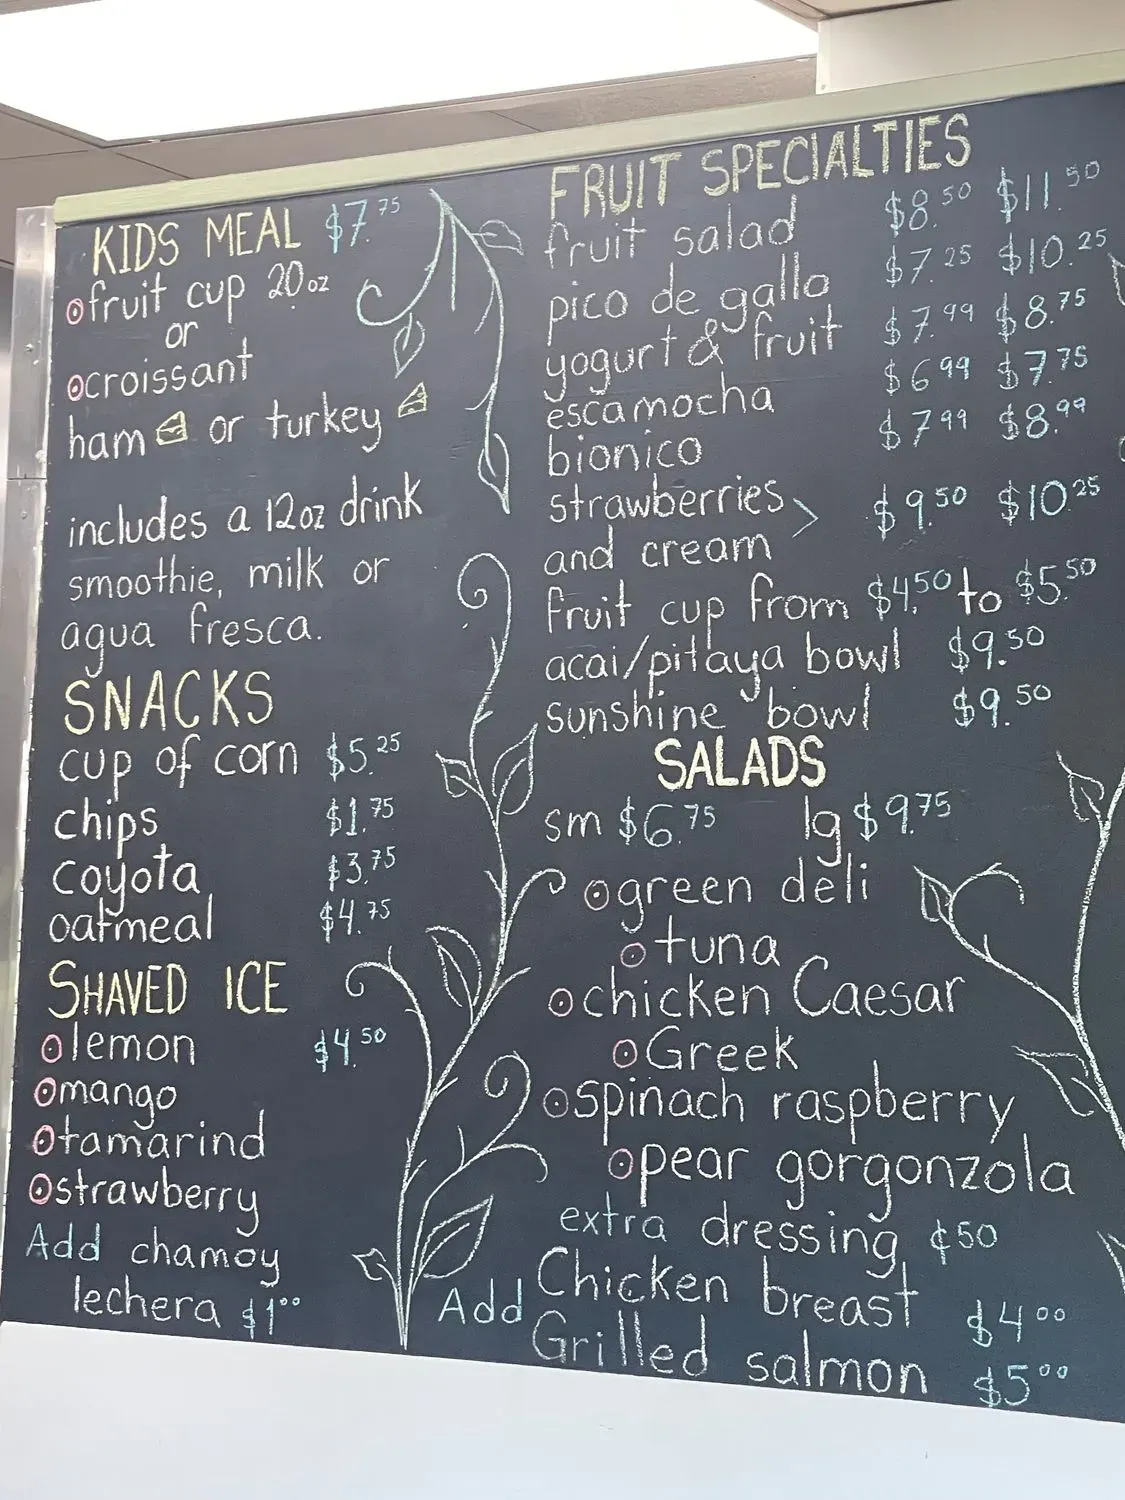 KIDS MEAL $7.75
fruit cup 20oz
or
croissant
ham or turkey
includes a 12oz drink
smoothie, milk or
agua fresca.
SNACKS
cup of corn $5.25
chips $1.75
coyota $3.75
oatmeal $4.75
SHAVED ICE
lemon $4.50
mango
tamarind
strawberry
Add chamoy
lechera $1.00
FRUIT SPECIALTIES
fruit salad $8.50 $11.50
pico de gallo $7.25 $10.25
yogurt & fruit $7.99 $8.75
escamocha $6.99 $7.75
bionico $7.99 $8.99
strawberries > $9.50 $10.25
and cream
fruit cup from $4.50 to $5.50
acai/pitaya bowl $9.50
sunshine bowl $9.50
SALADS
sm $6.75 lg $9.75
green deli
tuna
chicken Caesar
Greek
spinach raspberry
pear gorgonzola
extra dressing ¢50
Add Chicken breast $4.00
Grilled salmon $5.00